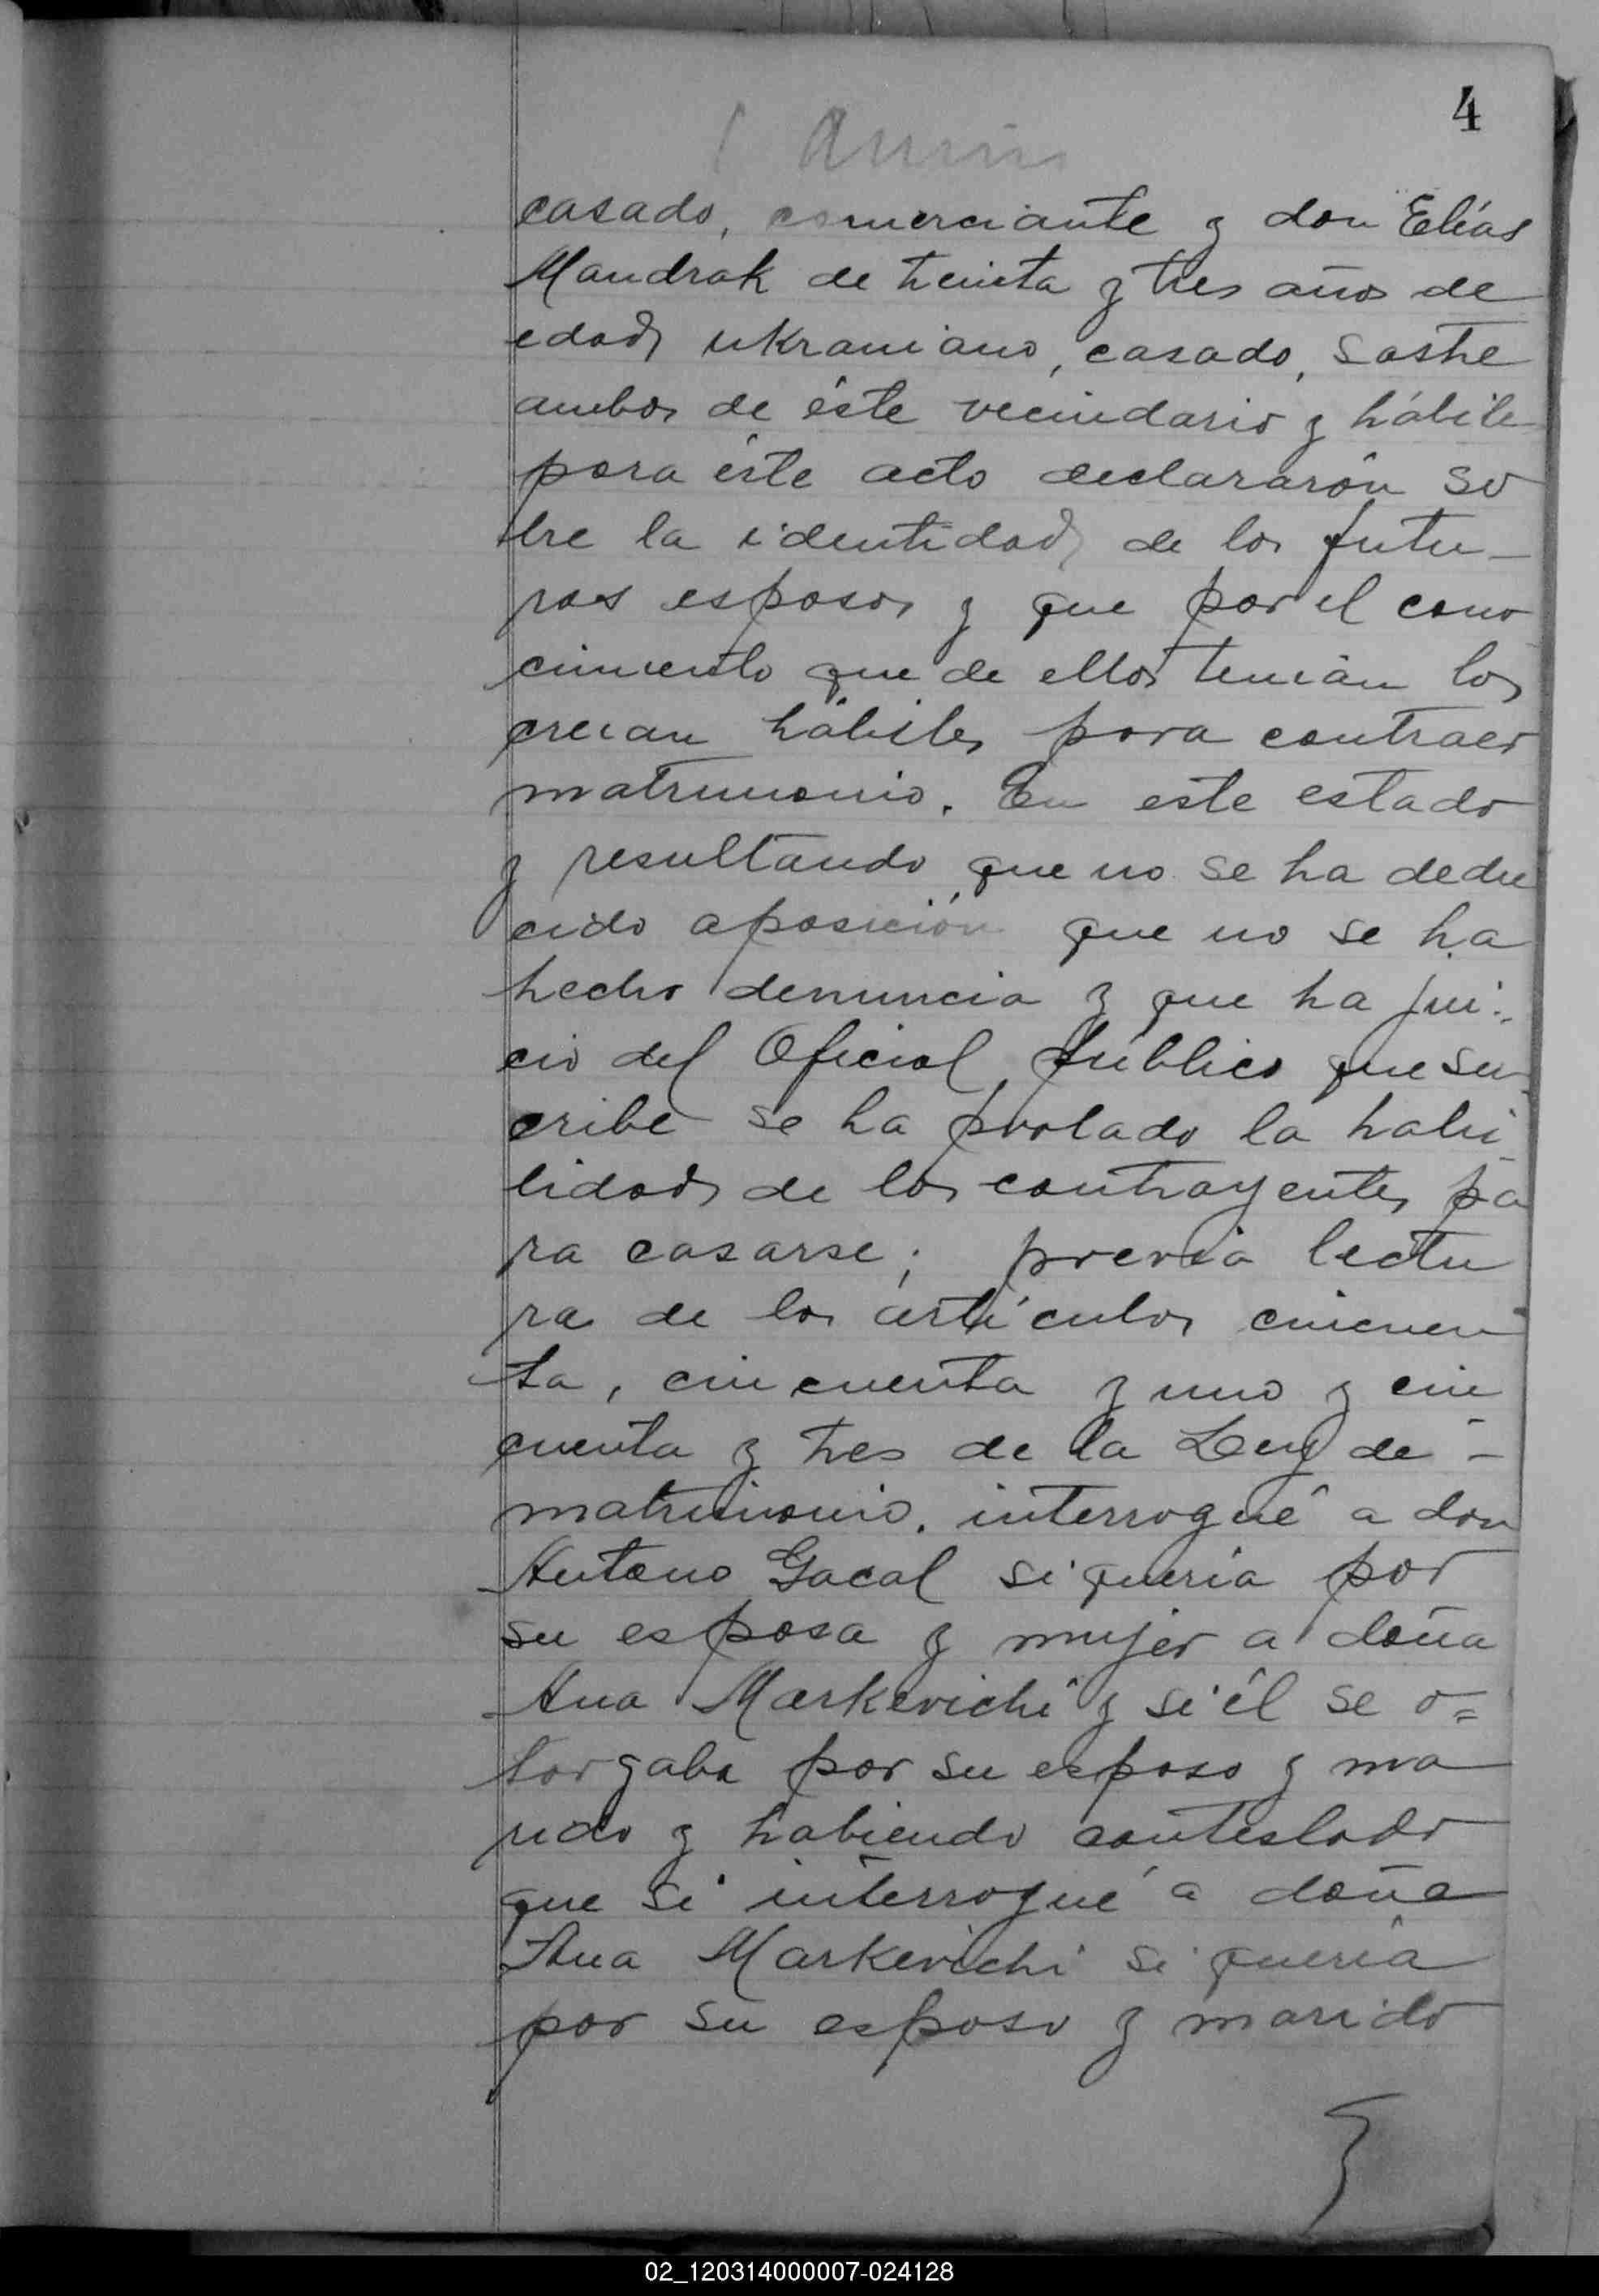 4
casado, comerciante y don Elías
Mandrak de treinta y tres años de
edad, ukraniano, casado, sastre
ambos de éste vecindario y hábile
para éste acto declararón so
bre la identidad de los futu-
ros esposos y que por el cono
cimiento que de ellos tenían los
creían hábiles para contraer
matrimonio. En este estado
y resultando que no se ha dedu
cido aposición que no se ha
hecho denuncia y que ha jui-
cio del Oficial público que sus
cribe se ha probado la habi
lidad de los contrayentes pa
ra casarse; previa lectu
ra de los artículos cincuen
ta, cincuenta y uno y cin
cuenta y tres de la Ley de -
matrimonio. interrogué a don
Antono Gacal si quería por
su esposa y mujer a doña
Ana Markevichi y si él se o=
torgaba por su esposo y ma
rido y habiendo contestado
que si interrogué a doña
Ana Markevichi si quería
por su esposo y marido
02_120314000007-024128